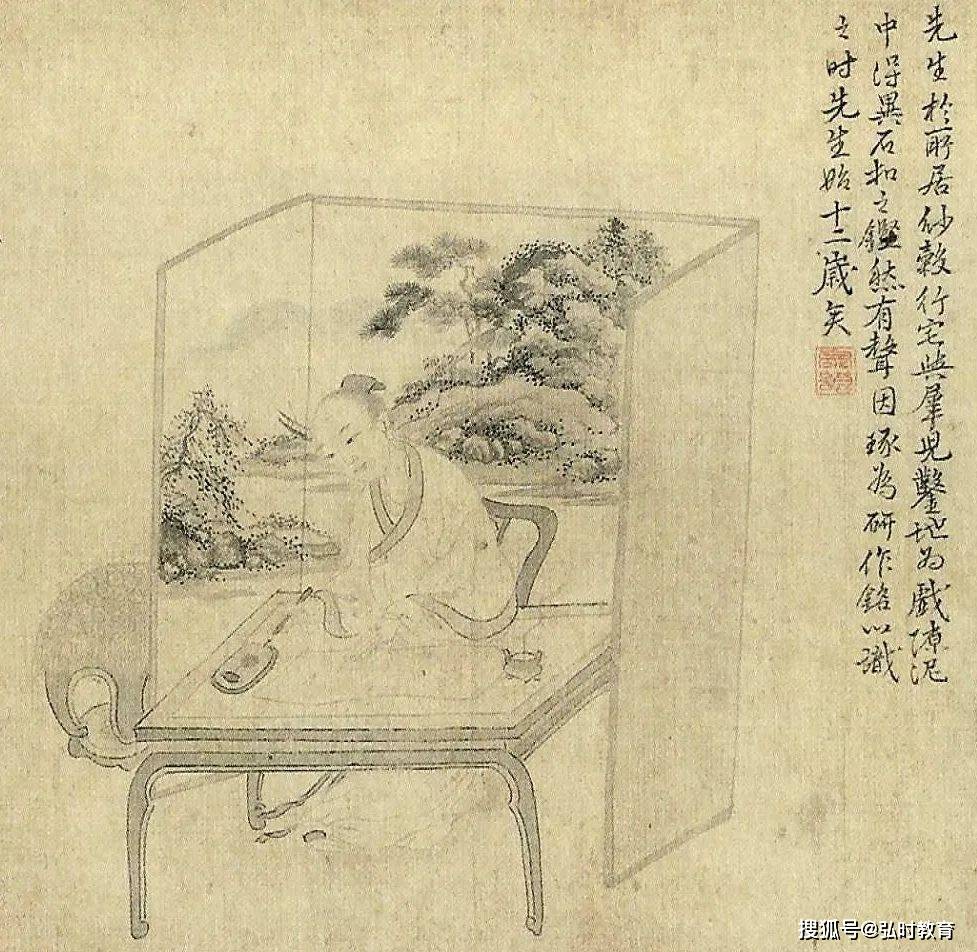 先生於所居紗縠行宅與羣兒鑿地為戲隙泥
中淂異石扣之鏗然有聲因琢為研作銘以識
之时先生始十二歲矣
搜狐号@弘时教育